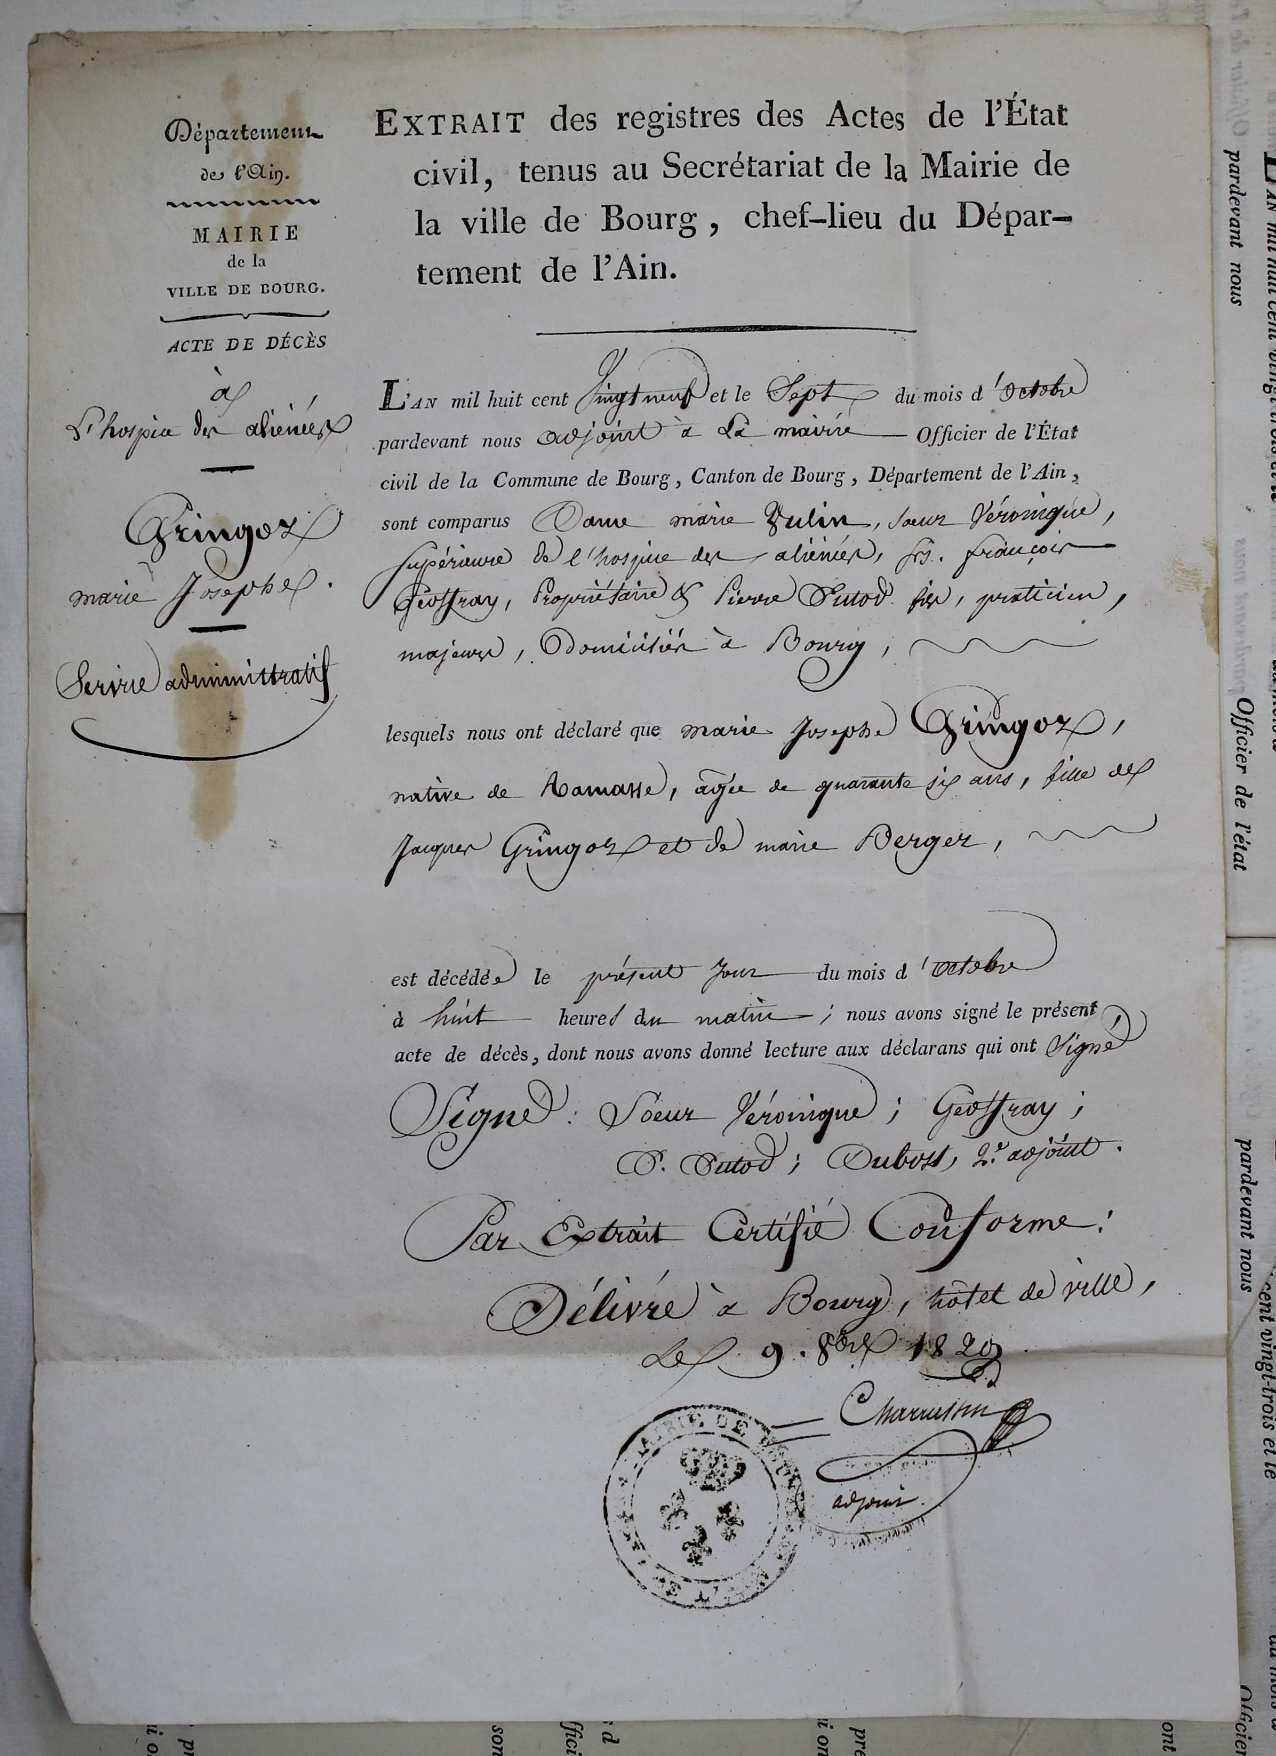 Département
de l'Ain.
MAIRIE
de la
VILLE DE BOURG.
ACTE DE DÉCÈS
à
L'hospice des aliénées
Gringoz
marie Josephe.
Service administratif
EXTRAIT des registres des Actes de l'État
civil, tenus au Secrétariat de la Mairie de
la ville de Bourg, chef-lieu du Dépar-
tement de l'Ain.
L'AN mil huit cent Vingt neuf et le Sept du mois d'Octobre
pardevant nous adjoint à La mairie Officier de l'État
civil de la Commune de Bourg, Canton de Bourg, Département de l'Ain,
sont comparus Dame marie Vulin, soeur Véronique,
supérieure de l'hospice des aliénées, françois
Geoffray, Propriétaire & Pierre Putod fils, praticien,
majeurs, Domiciliés à Bourg,
lesquels nous ont déclaré que marie Josephe Gringoz,
native de Ramasse, agée de quarante six ans, fille de
Jacques Gringoz et de marie Berger,
est décédée le présent Jour du mois d'octobre
à huit heures du matin; nous avons signé le présent
acte de décès, dont nous avons donné lecture aux déclarans qui ont Signé
Signé: Soeur Véronique; Geoffray;
P. Putod; Dubost, 2.e adjoint.
Par Extrait Certifié Conforme:
Délivré à Bourg, hôtel de ville,
Le 9. 8bre 1829
adjoint
MAIRIE DE BOURG
L'AN mil huit cent vingt-trois et le
pardevant nous
Officier de l'état
pardevant nous
cent vingt-trois et le
Officier